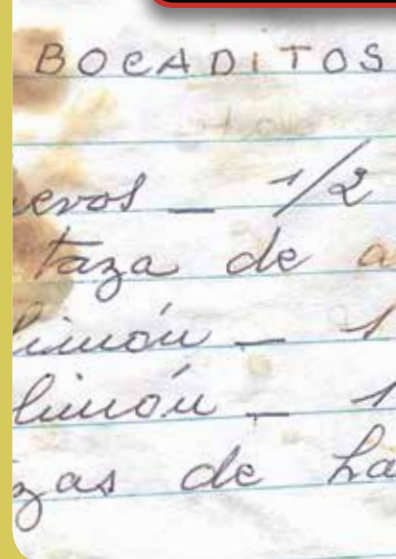 BOCADITOS
evos - 1/2
taza de a
limón - 1
limón - 1
zas de ha